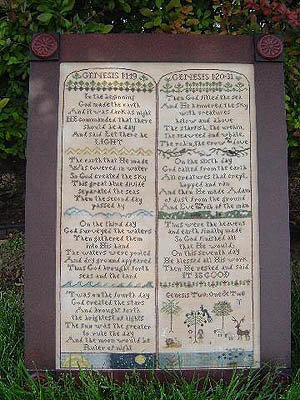 GENESIS 1:1-19
In the beginning
God made the earth
And it was dark as night
HE commanded that there
should be a day
And said Let there be
LIGHT
The earth that He made
Was covered in water
So God created the sky
This great blue divide
separated the seas
Then the second day
passed by
On the third day
God surveyed the waters
Then gathered them
into His hand
The waters were pooled
And dry ground appeared
Thus God brought forth
seas and the land
'Twas on the fourth day
God created the stars
And brought forth
the brightest of lights
The sun was the greater
to rule the day
And the moon would be
Ruler of night
GENESIS 1:20-31
Then God filled the sea
And He layered the sky
with creatures
below and above
The starfish, the
the maneed the whale,
The robin, the crow dove
On the sixth day
God called from the earth
All creatures that crept
hopped and ran
And then He made Adam
of dust from the ground
And Eve of the man
Thus were the heavens
and earth finally made
So God finished all
that He would
On this seventh day
He blessed all His work
Then He rested and said
IT IS GOOD
Genesis Two: One & Two